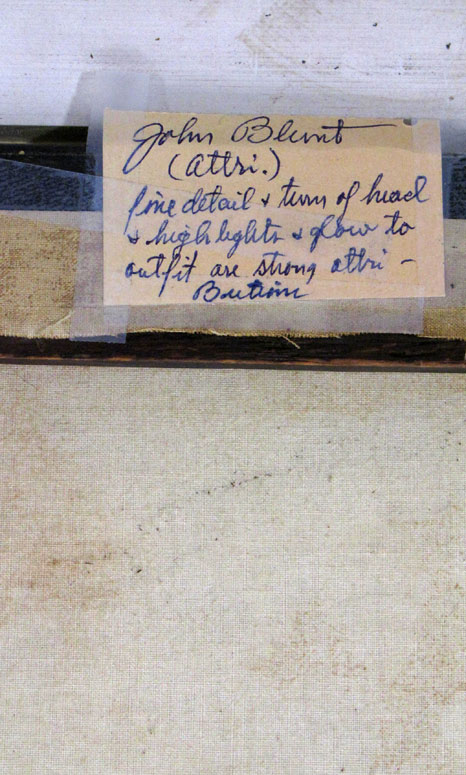 John Blunt
(Attri.)
fine detail & turn of head
& high lights & glow to
outfit are strong attri –
Bution